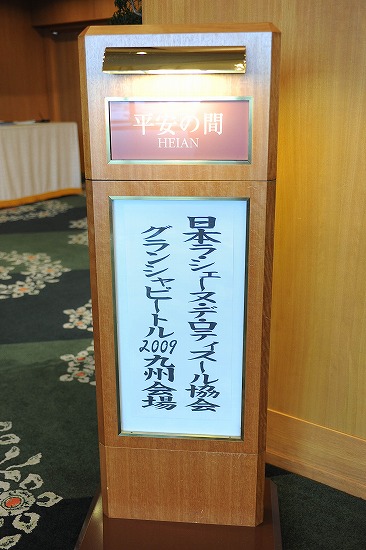 平安の間
HEIAN
日本ラ・シェーヌ・デ・ロティスール協会
グランシャピートル2009九州会場